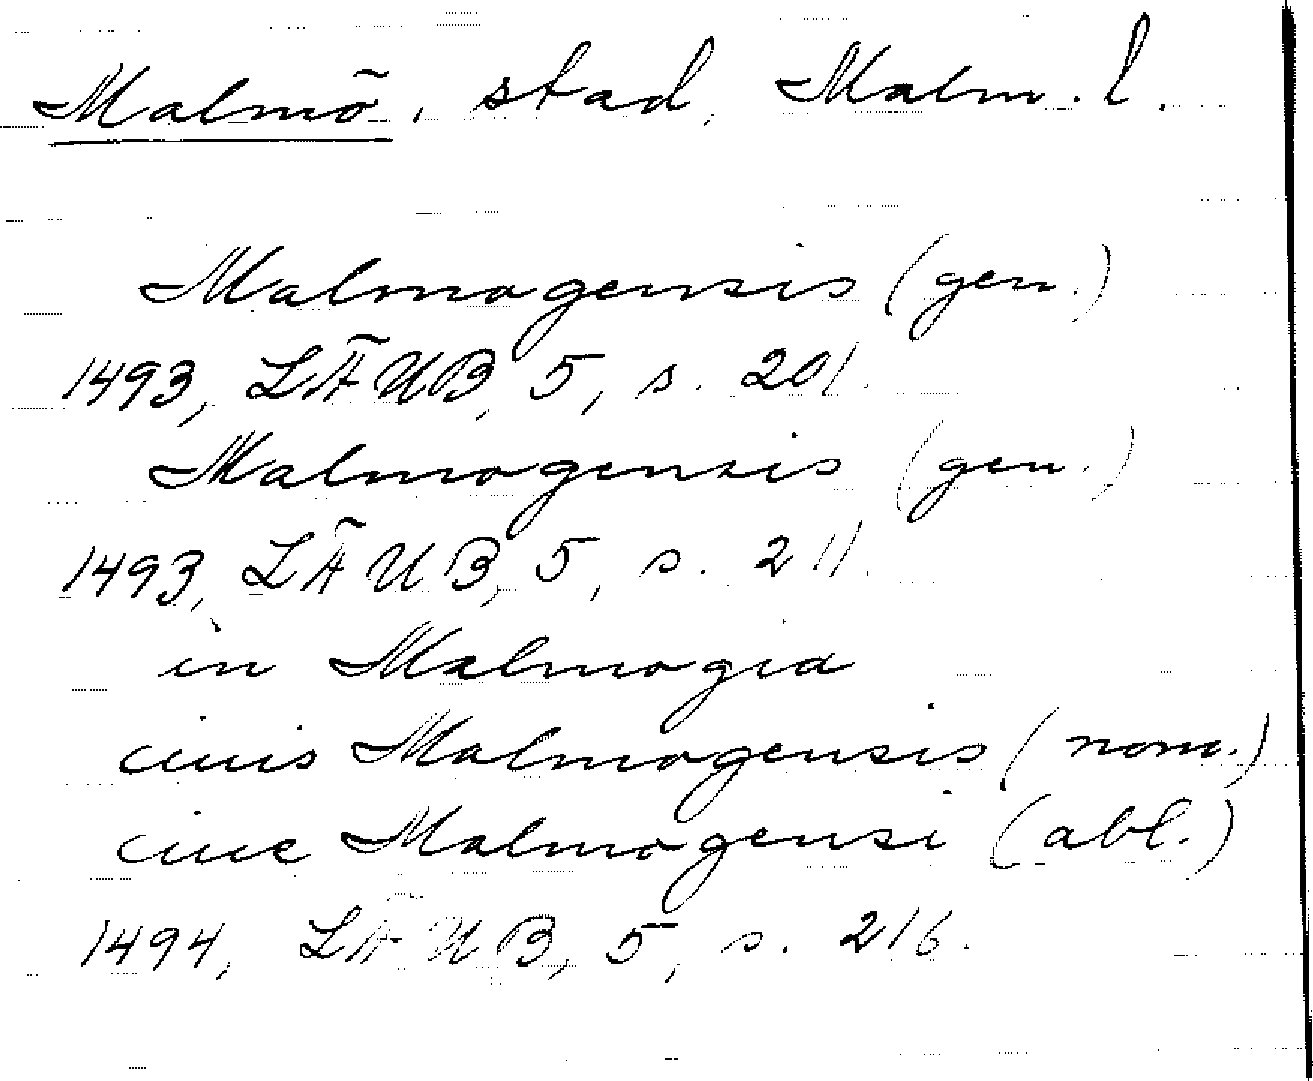 Malmö, stad, Malm. l.
Malmogensis (gen.)
1493, LÄUB, 5, s. 201.
Malmogensis (gen.)
1493, LÄUB, 5, s. 211.
in Malmogia
ciuis Malmogensis (nom.)
ciue Malmogensi (abl.)
1494, LÄUB, 5, s. 216.